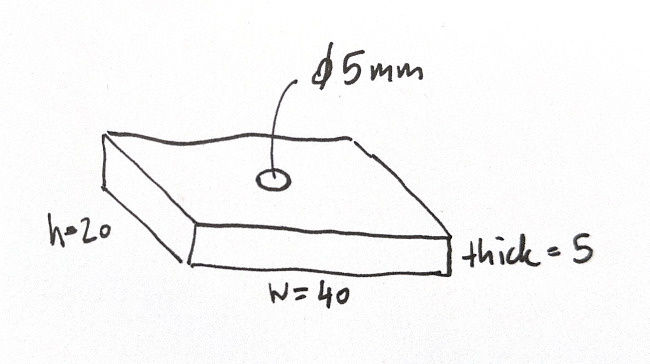 ⌀5mm
h=20
thick = 5
W=40